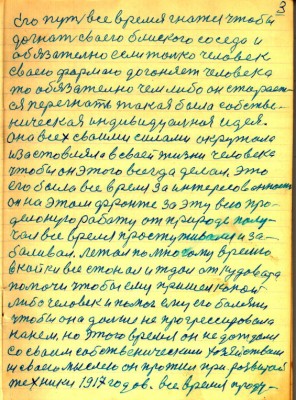 3
Его путь все время гнался чтобы
догнать своего близкого соседа и
обязательно если только человек
своею формаю догоняет человека
то обязательно чем либо он старает-
ся перегнать такая была собстве-
ническая индивидуалная идея.
Она всех своими силами окружала
и заставляла в своей жизни человека
чтобы он этого всегда делал, это
его была все время заинтересованность
он на этом фронте за эту всю про-
делоную работу от природе полу-
чал все время простуживал и за-
баливал. Лежал по многому время
в койки все стонал и ждал откудова то
помочи чтобы ему пришел какой
либо человек и помог ему его болезни
чтобы она дальше не прогрессировала
на нем, но этого время он не дождался
со своим собственическим хозяйством
и своею мыслею он прожил при развитой
техники 1917 годов. все время проду-